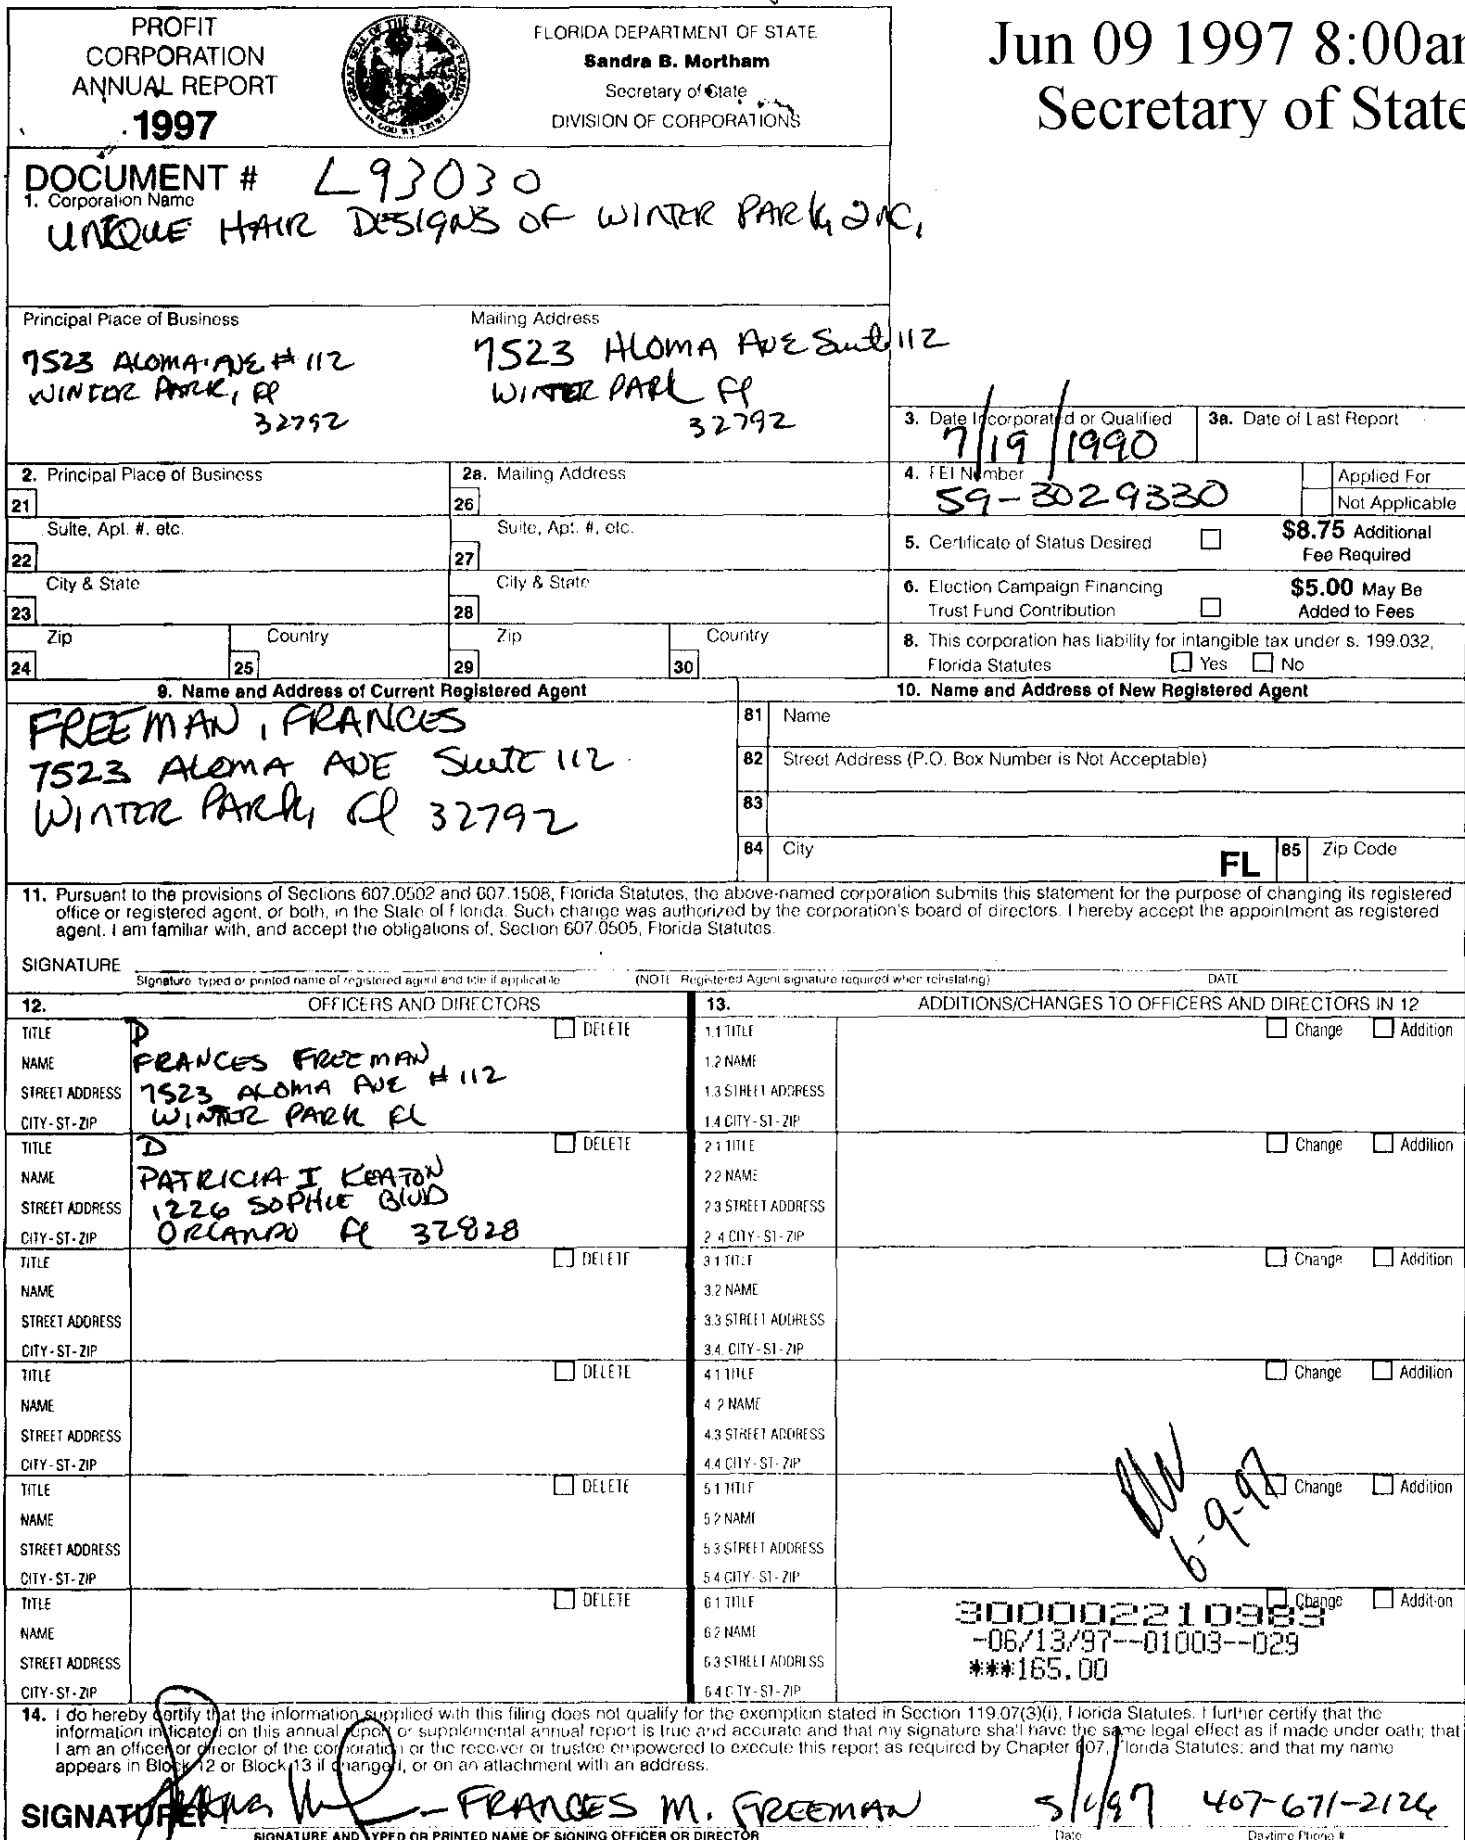 PROFIT
CORPORATION
ANNUAL REPORT
1997
FLORIDA DEPARTMENT OF STATE
Sandra B. Mortham
Secretary of State
DIVISION OF CORPORATIONS
Jun 09 1997 8:00am
Secretary of State
DOCUMENT # L93030
1. Corporation Name
UNIQUE HAIR DESIGNS OF WINTER PARK, INC,
Principal Place of Business
7523 ALOMA AVE # 112
WINTER PARK, Fl
32792
Mailing Address
7523 ALOMA AVE Suite 112
WINTER PARK Fl
32792
3. Date Incorporated or Qualified
7/19/1990
3a. Date of Last Report
2. Principal Place of Business
21
2a. Mailing Address
26
4. FEI Number
59-3029330
Applied For
Not Applicable
Suite, Apt. #, etc.
22
Suite, Apt. #, etc.
27
5. Certificate of Status Desired
$8.75 Additional
Fee Required
City & State
23
City & State
28
6. Election Campaign Financing
Trust Fund Contribution
$5.00 May Be
Added to Fees
Zip
24
Country
25
Zip
29
Country
30
8. This corporation has liability for intangible tax under s. 199.032,
Florida Statutes Yes No
9. Name and Address of Current Registered Agent
FREEMAN, FRANCES
7523 ALOMA AVE Suite 112
WINTER PARK, Fl 32792
10. Name and Address of New Registered Agent
81 Name
82 Street Address (P.O. Box Number is Not Acceptable)
83
84 City FL 85 Zip Code
11. Pursuant to the provisions of Sections 607.0502 and 607.1508, Florida Statutes, the above-named corporation submits this statement for the purpose of changing its registered
office or registered agent, or both, in the State of Florida. Such change was authorized by the corporation's board of directors. I hereby accept the appointment as registered
agent. I am familiar with, and accept the obligations of, Section 607.0505, Florida Statutes.
SIGNATURE
Signature typed or printed name of registered agent and title if applicable (NOTE Registered Agent signature required when reinstating) DATE
12. OFFICERS AND DIRECTORS
13. ADDITIONS/CHANGES TO OFFICERS AND DIRECTORS IN 12
TITLE D DELETE
NAME FRANCES FREEMAN
STREET ADDRESS 7523 ALOMA AVE # 112
CITY-ST-ZIP WINTER PARK FL
1.1 TITLE Change Addition
1.2 NAME
1.3 STREET ADDRESS
1.4 CITY-ST-ZIP
TITLE D DELETE
NAME PATRICIA I KEATON
STREET ADDRESS 1226 SOPHIE BLVD
CITY-ST-ZIP ORLANDO Fl 32828
2.1 TITLE Change Addition
2.2 NAME
2.3 STREET ADDRESS
2.4 CITY-ST-ZIP
TITLE DELETE
NAME
STREET ADDRESS
CITY-ST-ZIP
3.1 TITLE Change Addition
3.2 NAME
3.3 STREET ADDRESS
3.4. CITY-ST-ZIP
TITLE DELETE
NAME
STREET ADDRESS
CITY-ST-ZIP
4.1 TITLE Change Addition
4.2 NAME
4.3 STREET ADDRESS
4.4 CITY-ST-ZIP
TITLE DELETE
NAME
STREET ADDRESS
CITY-ST-ZIP
5.1 TITLE Change Addition
5.2 NAME
5.3 STREET ADDRESS
5.4 CITY-ST-ZIP
6-9-97
TITLE DELETE
NAME
STREET ADDRESS
CITY-ST-ZIP
6.1 TITLE Change Addition
6.2 NAME
6.3 STREET ADDRESS
6.4 CITY-ST-ZIP
300002210983
-06/13/97--01003--029
***165.00
14. I do hereby certify that the information supplied with this filing does not qualify for the exemption stated in Section 119.07(3)(i), Florida Statutes. I further certify that the
information indicated on this annual report or supplemental annual report is true and accurate and that my signature shall have the same legal effect as if made under oath; that
I am an officer or director of the corporation or the receiver or trustee empowered to execute this report as required by Chapter 607, Florida Statutes; and that my name
appears in Block 12 or Block 13 if changed, or on an attachment with an address.
SIGNATURE: FRANCES M. FREEMAN 5/1/97 407-671-2126
SIGNATURE AND TYPED OR PRINTED NAME OF SIGNING OFFICER OR DIRECTOR Date Daytime Phone #